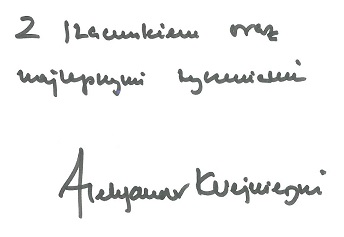 Z szacunkiem oraz
najlepszymi życzeniami
Aleksander